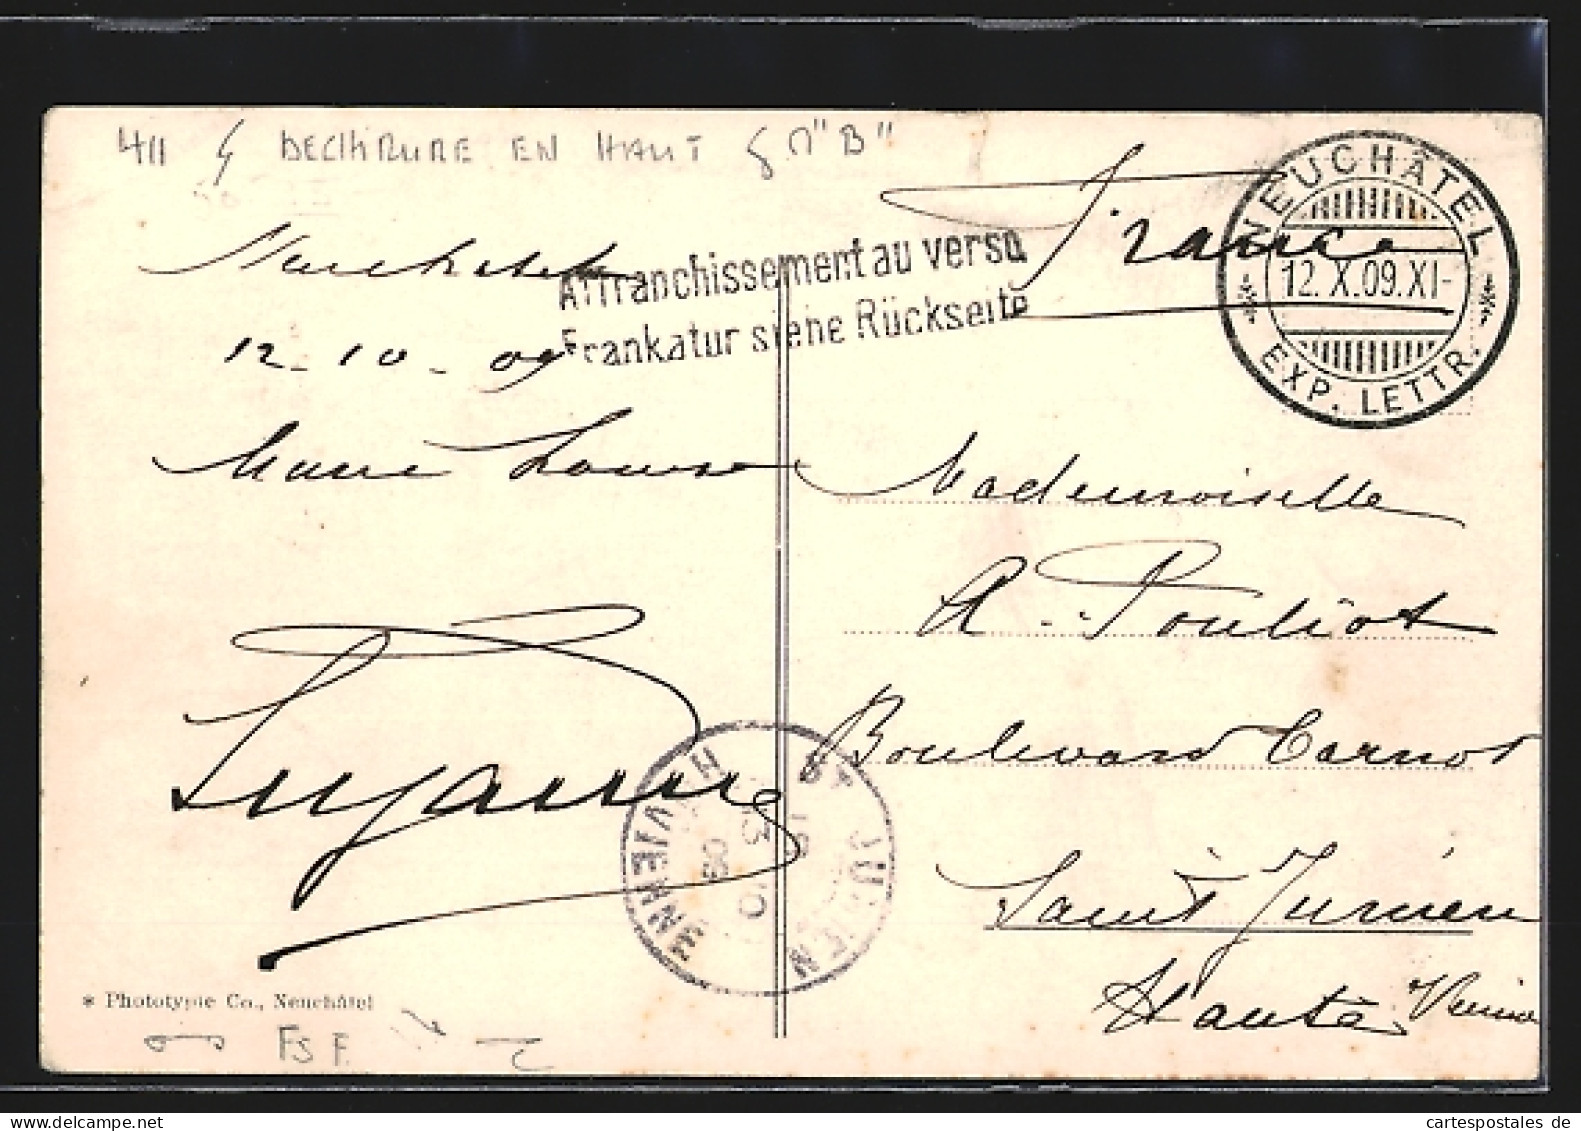 411 DECHIRURE EN HAUT "B"
Neuchatel
12 - 10 - 09
Marie Louise
Suzanne
Affranchissement au verso
Frankatur siehe Rückseite
France
NEUCHÂTEL
12. X.09.XI-
EXP. LETTR.
Mademoiselle
A. Pouliot
Boulevard Carnot
Saint Junien
Haute Vienne
ST JUNIEN
13 10
09
HTE VIENNE
* Phototypie Co., Neuchâtel
FSF.
cartespostales de